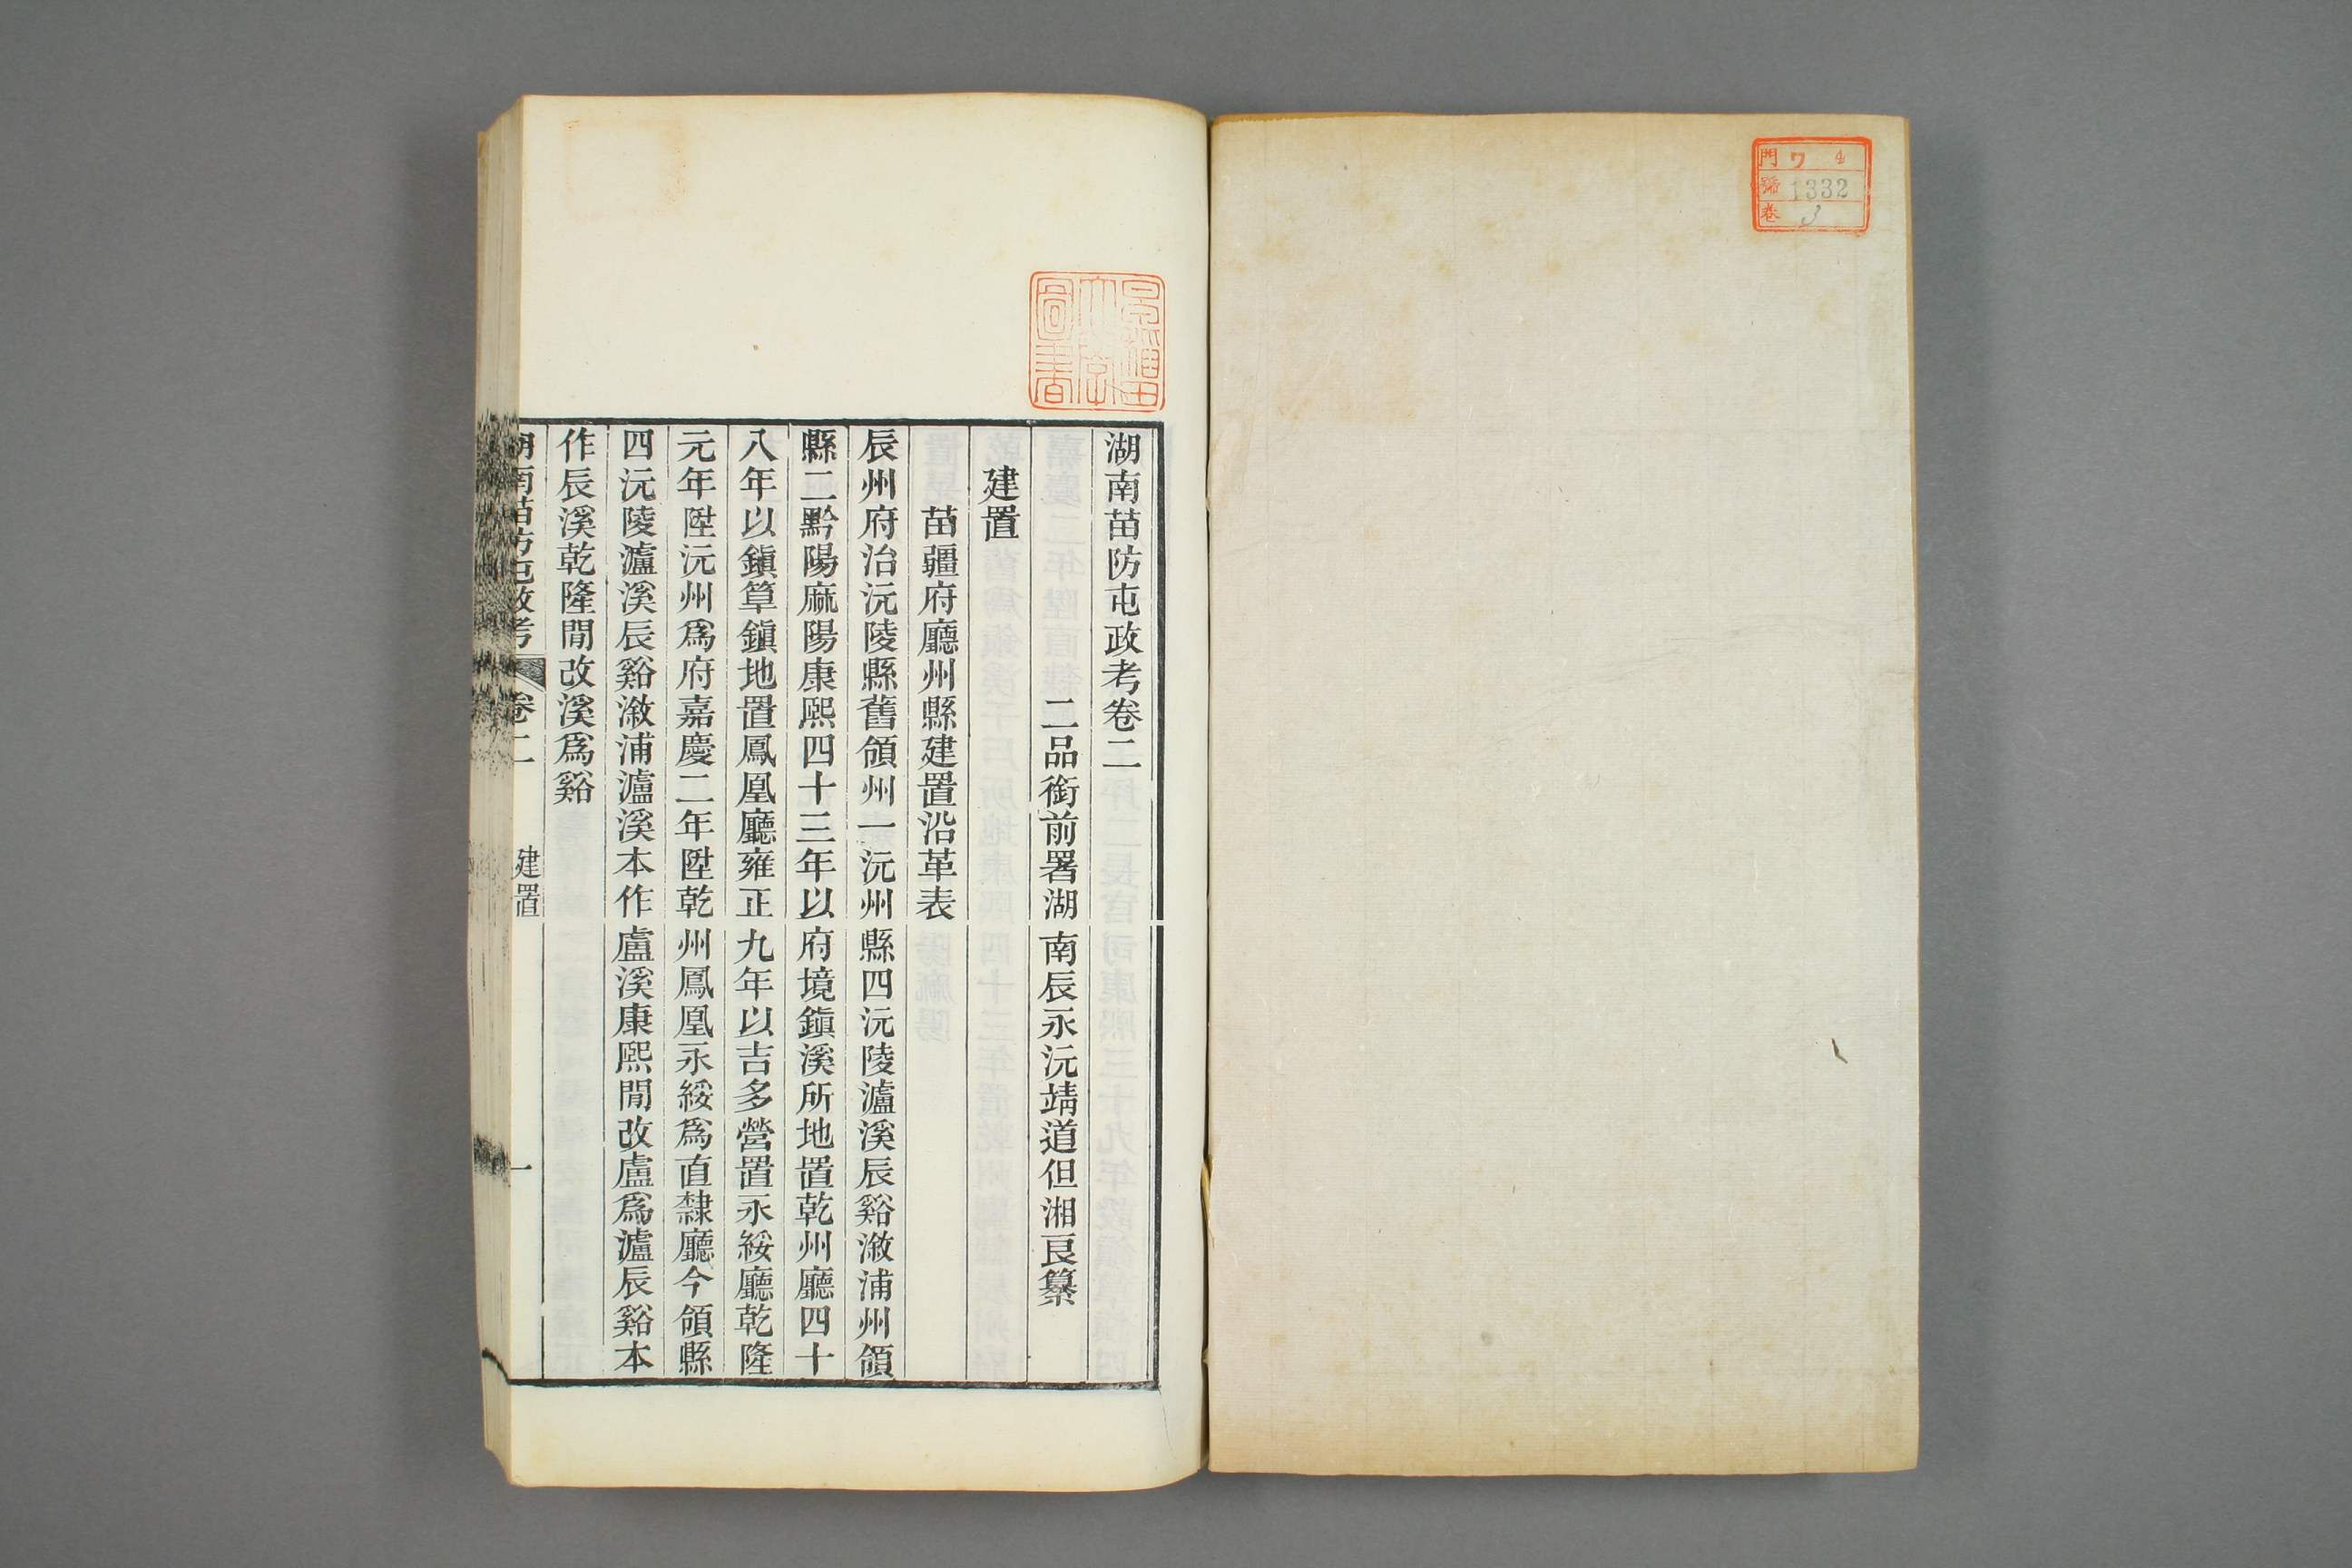 門 ワ 4
號 1332
卷 3
早稲田
大學
圖書
湖南苗防屯政考卷二
二品銜前署湖南辰永沅靖道但湘良纂
建置
苗疆府廳州縣建置沿革表
辰州府治沅陵縣舊領州一沅州縣四沅陵瀘溪辰谿漵浦州領
縣二黔陽麻陽康熙四十三年以府境鎭溪所地置乾州廳四十
八年以鎭筸鎭地置鳳凰廳雍正九年以吉多營置永綏廳乾隆
元年陞沅州爲府嘉慶二年陞乾州鳳凰永綏爲直隸廳今領縣
四沅陵瀘溪辰谿漵浦瀘溪本作盧溪康熙間改盧爲瀘辰谿本
作辰溪乾隆間改溪爲谿
湖南苗防屯政考 卷二 建置 一